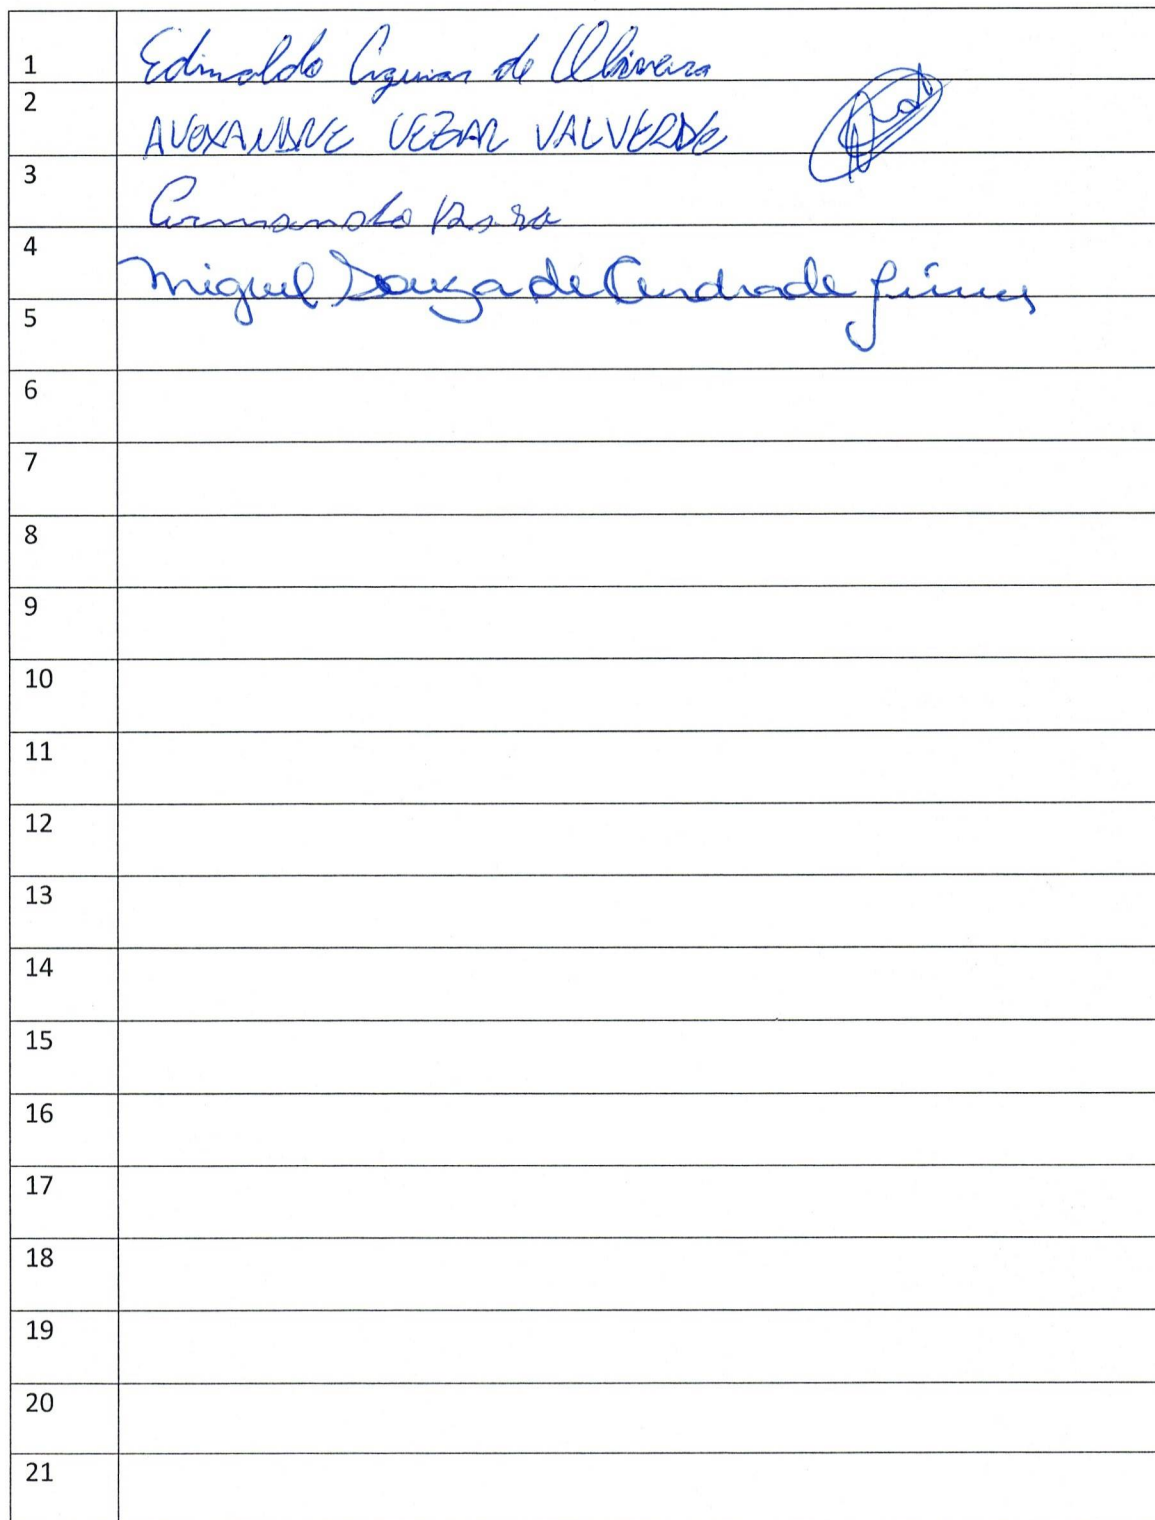 1 Edinaldo Aguiar de Oliveira
2 ALEXANDRE CEZAR VALVERDE
3 Armando
4 Miguel Souza de Andrade Júnior
5
6
7
8
9
10
11
12
13
14
15
16
17
18
19
20
21